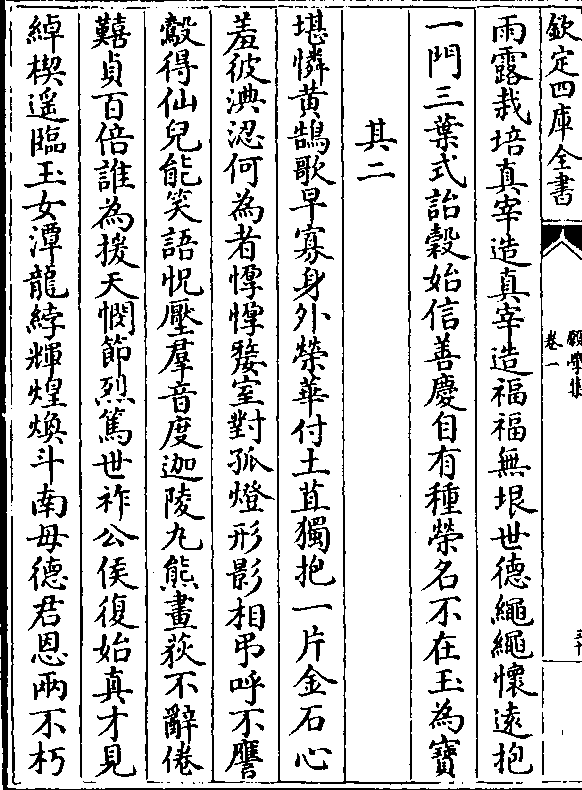 欽定四庫全書
卷一
雨露栽培真宰造真宰造福福無垠世德繩繩懷遠抱
一門三葉式詒穀始信善慶自有種榮名不在玉為寶
其二
堪憐黃鵠歌早寡身外榮華付土苴獨抱一片金石心
羞彼淟涊何為者惸惸嫠室對孤燈形影相弔呼不譍
鷇得仙兒能笑語怳壓羣音度迦陵九熊畫荻不辭倦
囏貞百倍誰為援天憫節烈篤世祚公侯復始真才見
綽楔遥臨玉女潭龍綍輝煌煥斗南母德君恩兩不朽